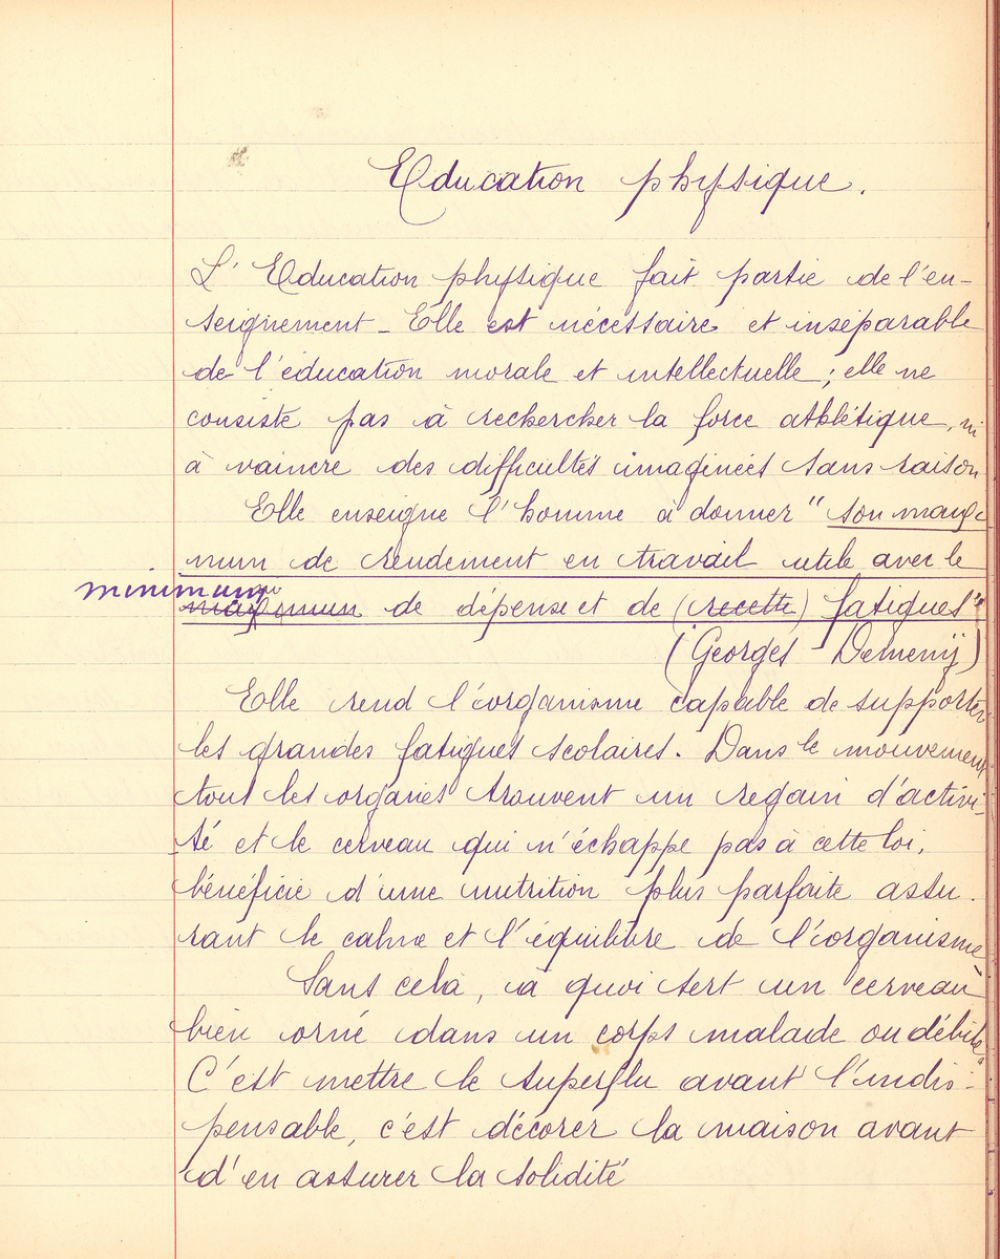 Education physique.
L'Education physique fait partie de l'en-
seignement - Elle est nécessaire et inséparable
de l'éducation morale et intellectuelle ; elle ne
consiste pas à rechercher la force athlétique, ni
à vaincre des difficultés imaginées sans raison
Elle enseigne l'homme à donner "son maxi-
mum de rendement en travail utile avec le
minimum
maximum de dépense et de (recette) fatigues"
(Georges Demenÿ)
Elle rend l'organisme capable de supporter
les grandes fatigues scolaires. Dans le mouvement
tous les organes trouvent un regain d'activi-
té et le cerveau qui n'échappe pas à cette loi,
bénéficie d'une nutrition plus parfaite assu-
rant le calme et l'équilibre de l'organisme
Sans cela, à quoi sert un cerveau
bien orné dans un corps malade ou débile.
C'est mettre le superflu avant l'indis-
pensable, c'est décorer la maison avant
d'en assurer la solidité